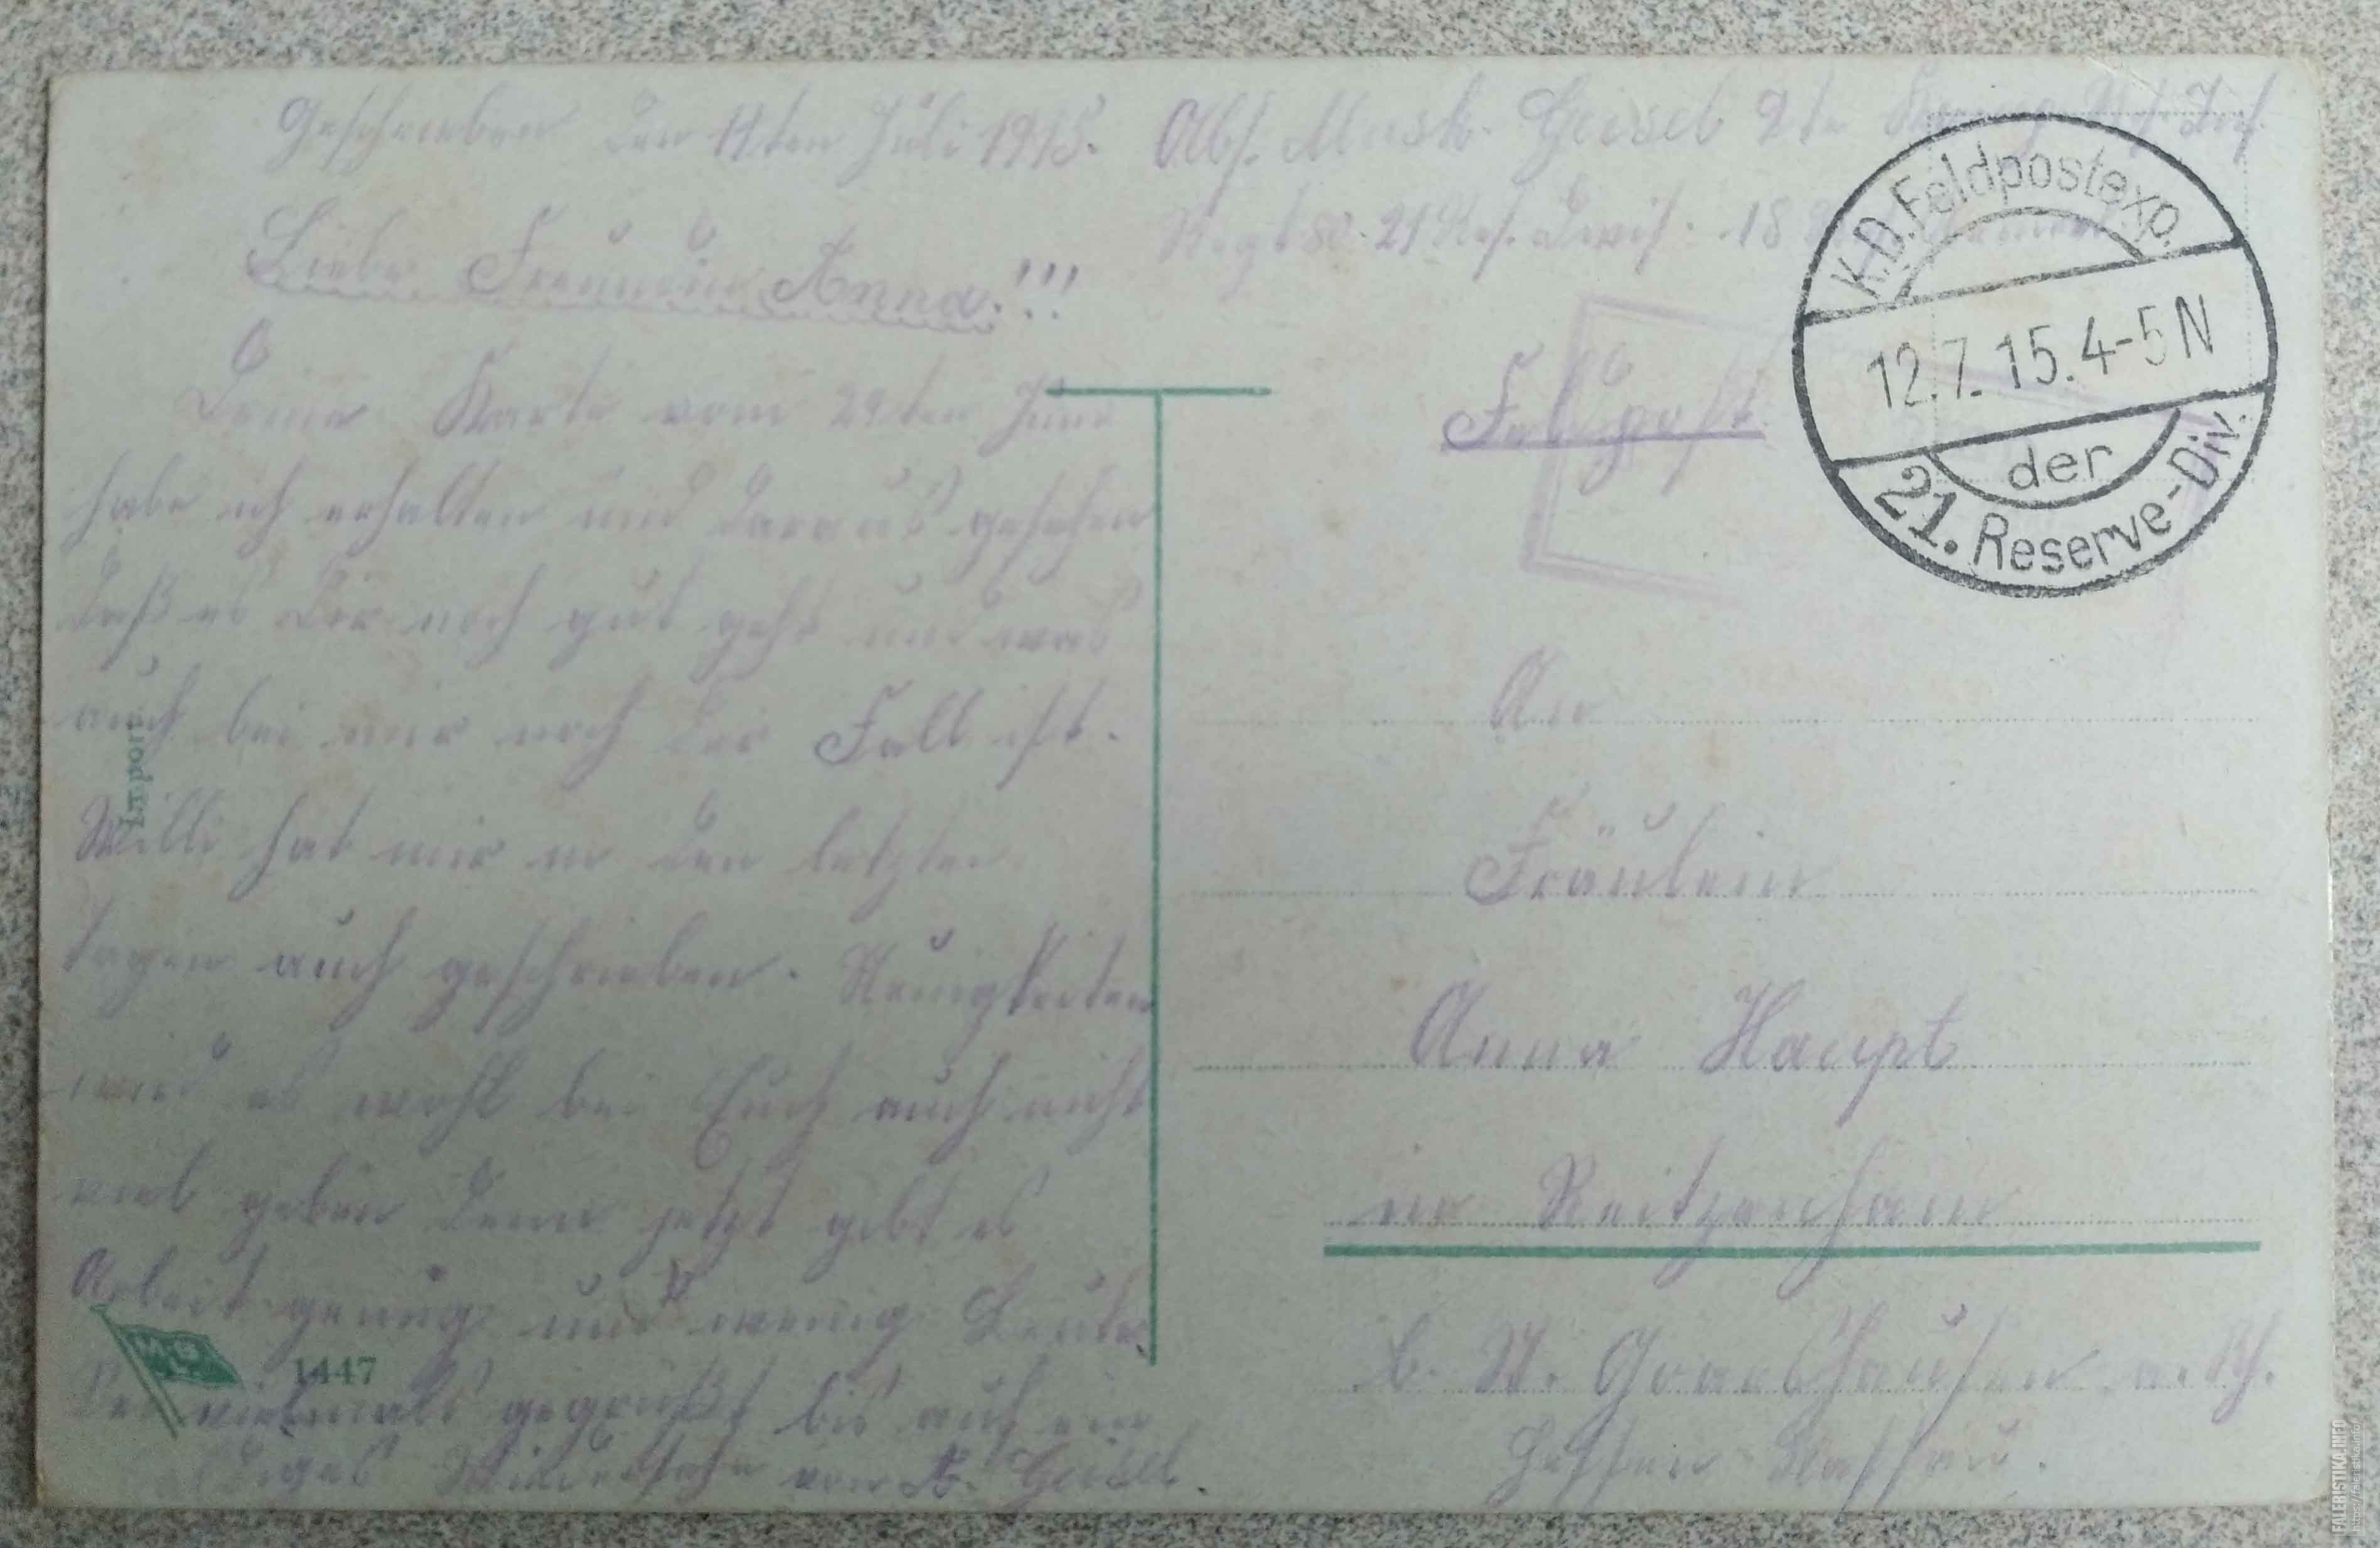 Geschrieben den 12ten Juli 1915.
Liebe Freundin Anna!!!
Deine Karte vom 29ten Juni
habe ich erhalten und daraus gesehen
daß es Dir noch gut geht und was
auch bei mir noch der Fall ist.
Willi hat mir in den letzten
Tagen auch geschrieben. Neuigkeiten
wird es wohl bei Euch auch nicht
viel geben denn jetzt gibt es
Arbeit genug und wenig Leute.
Sei vielmals gegrüßt bis auf ein
baldiges Wiedersehn von A. Geisel.
Import
M.B.L.
1447
Abs. Musk. Geisel 2te Komp. Res. Inf.
Regt 80. 21 Res. Divis. 18
K.D. Feldpostexp.
12.7.15.4-5N
der
21. Reserve-Div.
Feldpost
An
Fräulein
Anna Haupt
in Reitzenhain
b. St. Goarshausen a. Rh.
Hessen Nassau.
FALERISTIKA.INFO
http://faleristika.info/